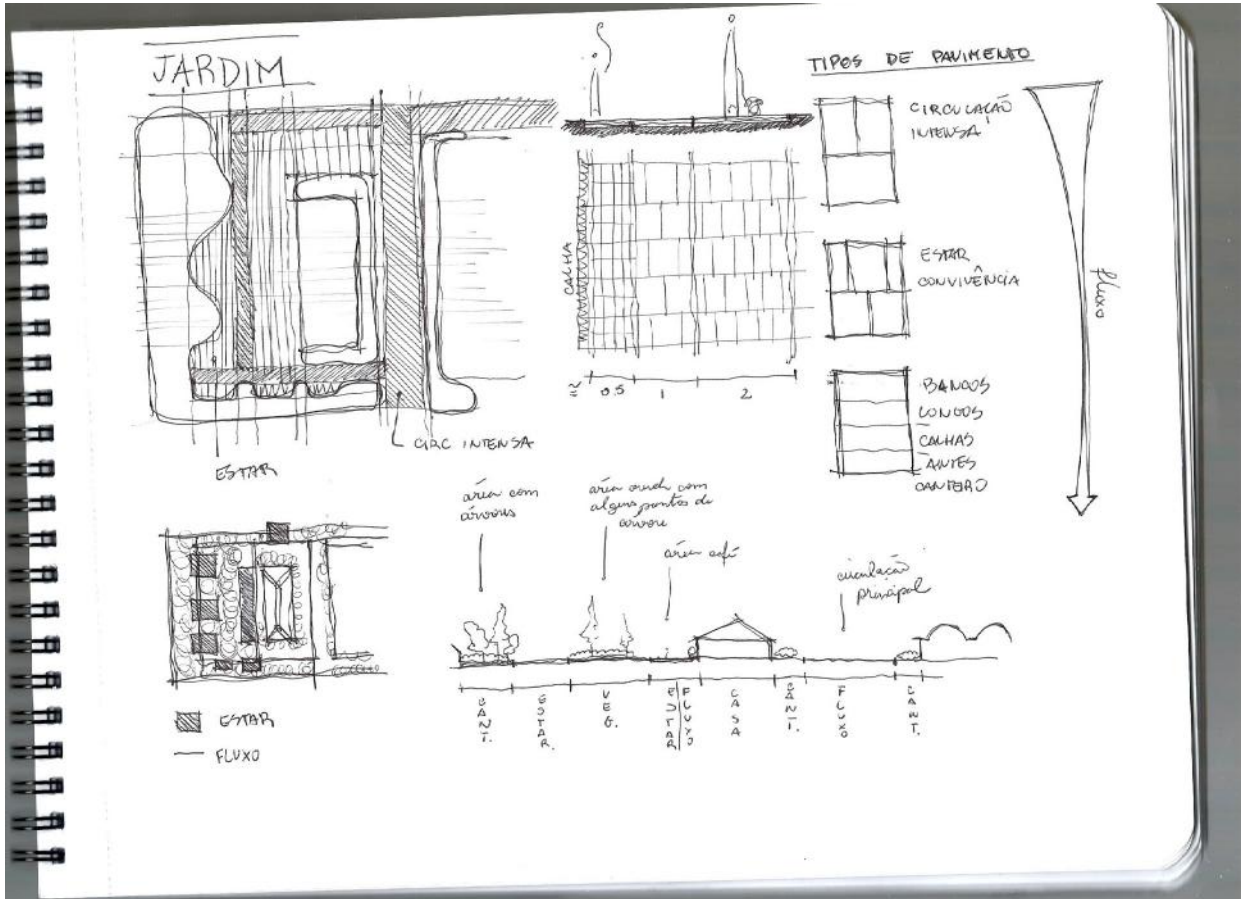 JARDIM
ESTAR
CIRC INTENSA
CALHA
0.5
1
2
TIPOS DE PAVIMENTO
CIRCULAÇÃO
INTENSA
ESTAR
CONVIVÊNCIA
BANCOS
LONGOS
CALHAS
ANTES
CANTEIRO
fluxo
ESTAR
FLUXO
área com
árvores
área com
alguns pontos de
árvore
área café
circulação
principal
CANT.
ESTAR.
VEG.
ESTAR
FLUXO
CASA
CANT.
FLUXO
CANT.